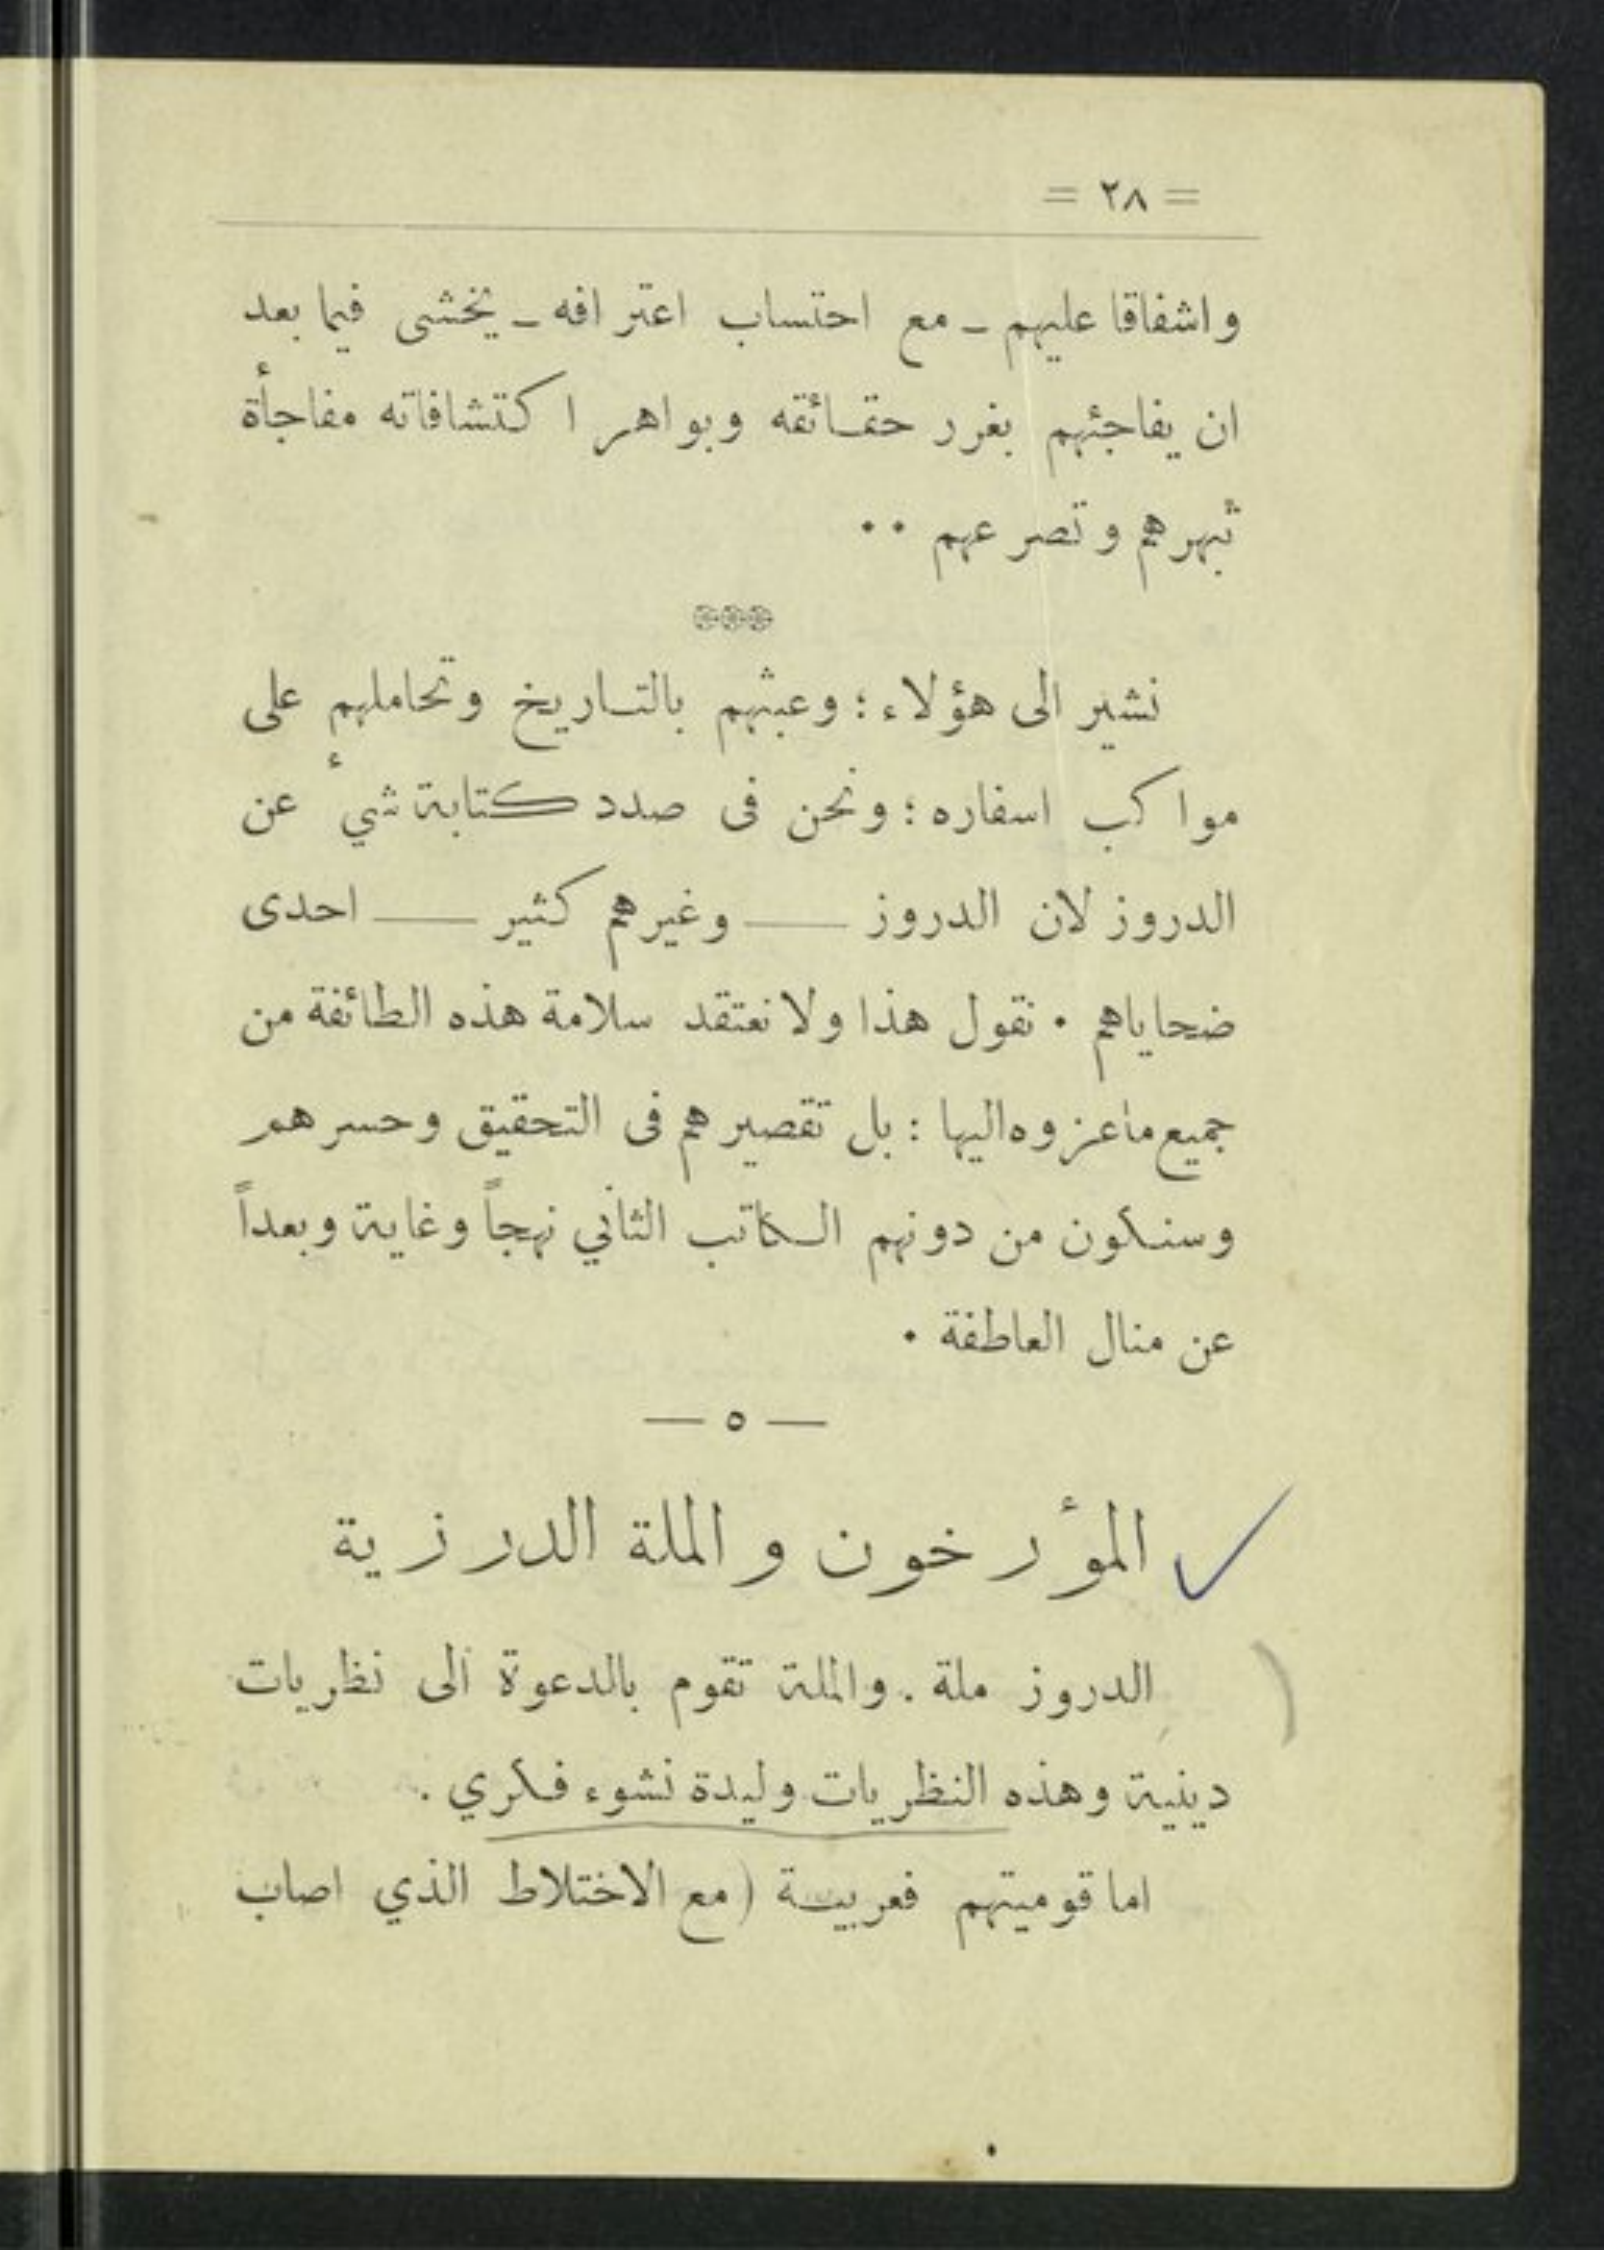 = ٢٨ =
واشفاقا عليهم ـ مع احتساب اعترافه ـ يخشى فيما بعد
ان يفاجئهم بغرر حقائقه وبواهر اكتشافاته مفاجأة
تبهرهم وتصرعهم ··
نشير الى هؤلاء ؛ وعبثهم بالتاريخ وتحاملهم على
مواكب اسفاره ؛ ونحن فى صدد كتابة شيء عن
الدروز لان الدروز —— وغيرهم كثير —— احدى
ضحاياهم · نقول هذا ولا نعتقد سلامة هذه الطائفة من
جميع ماعزوه اليها : بل تقصيرهم فى التحقيق وحسرهم
وسنكون من دونهم الكاتب الثاني نهجاً وغاية وبعداً
عن منال العاطفة ·
— ٥ —
المؤرخون والملة الدرزية
الدروز ملة . والملة تقوم بالدعوة الى نظريات
دينية وهذه النظريات وليدة نشوء فكري .
اما قوميتهم فعربية (مع الاختلاط الذي اصاب